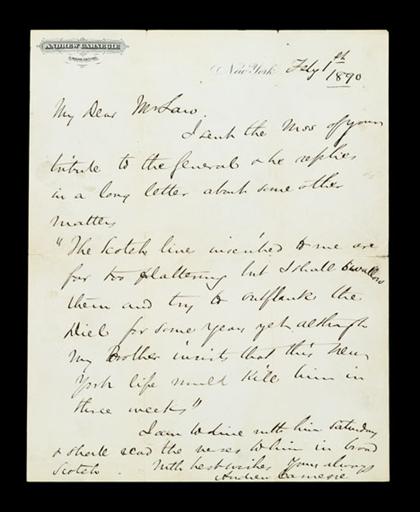 ANDREW CARNEGIE
New York Feby 1st
1890
My Dear Mr Law
I sent the Mss of your
tribute to the General & he replies
in a long letter about some other
matters
"The Scotch line inscribed to me are
far too flattering but I shall swallow
them and try to outflank the
Diel for some years yet although
my Brother insists that this New
York life would kill him in
three weeks"
I am to dine with him Saturday
& shall read the verses to him in broad
Scotch. With best wishes Yours always
Andrew Carnegie